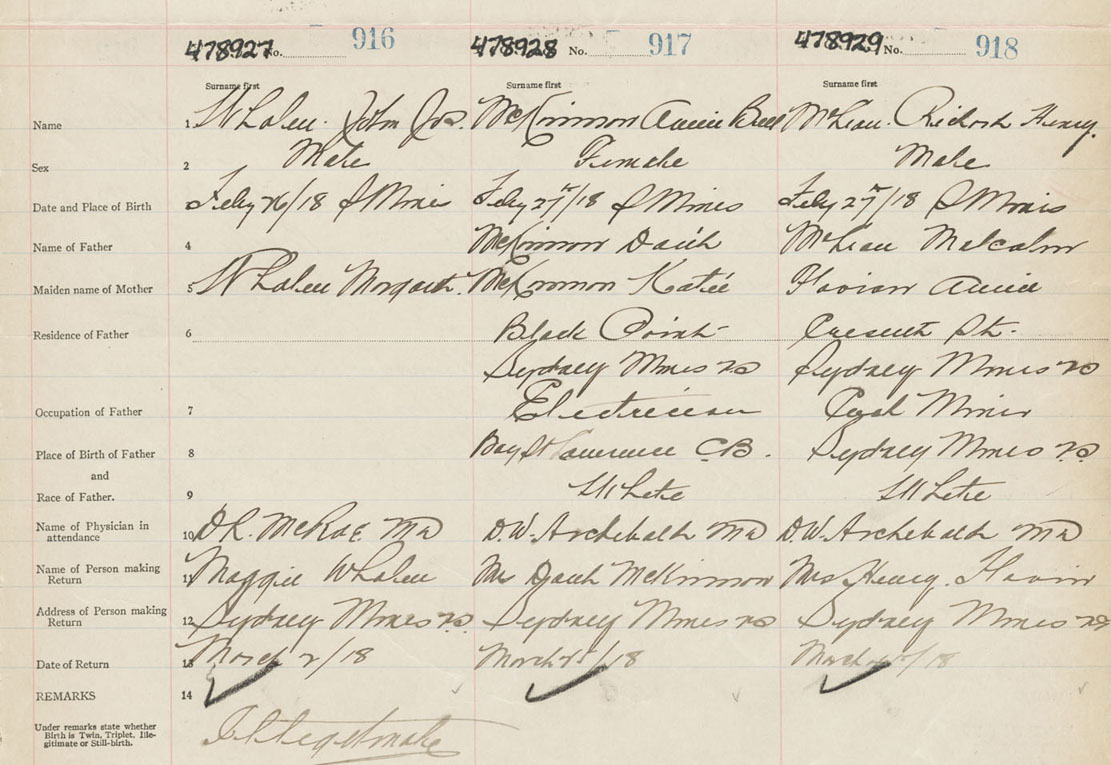 478927 No. 916 478928 No. 917 478929 No. 918
Surname first Surname first Surname first
Name 1 Whalen John Jos. McKinnon Annie Bell McLean Henry
Sex 2 Male Female Male
Date and Place of Birth 3 Feby 26/18 S Mines Feby 27/18 S Mines Feby 27/18 S Mines
Name of Father 4 McKinnon McLean Malcolm
Maiden name of Mother 5 Whalen McKinnon Katie Annie
Residence of Father 6 Black Point Cresent St.
Sydney Mines NS Sydney Mines NS
Occupation of Father 7 Electrician Coal Miner
Place of Birth of Father 8 Bay St Lawrence C.B. Sydney Mines NS
and
Race of Father. 9 White White
Name of Physician in attendance 10 D.R. McRae MD D.W. Archibald MD D.W. Archibald MD
Name of Person making Return 11 Maggie Whalen McKinnon Mrs Henry
Address of Person making Return 12 Sydney Mines NS Sydney Mines NS Sydney Mines NS
Date of Return 13 March 2/18 March /18 March /18
REMARKS 14
Under remarks state whether
Birth is Twin, Triplet, Ille-
gitimate or Still-birth.
Illegitimate